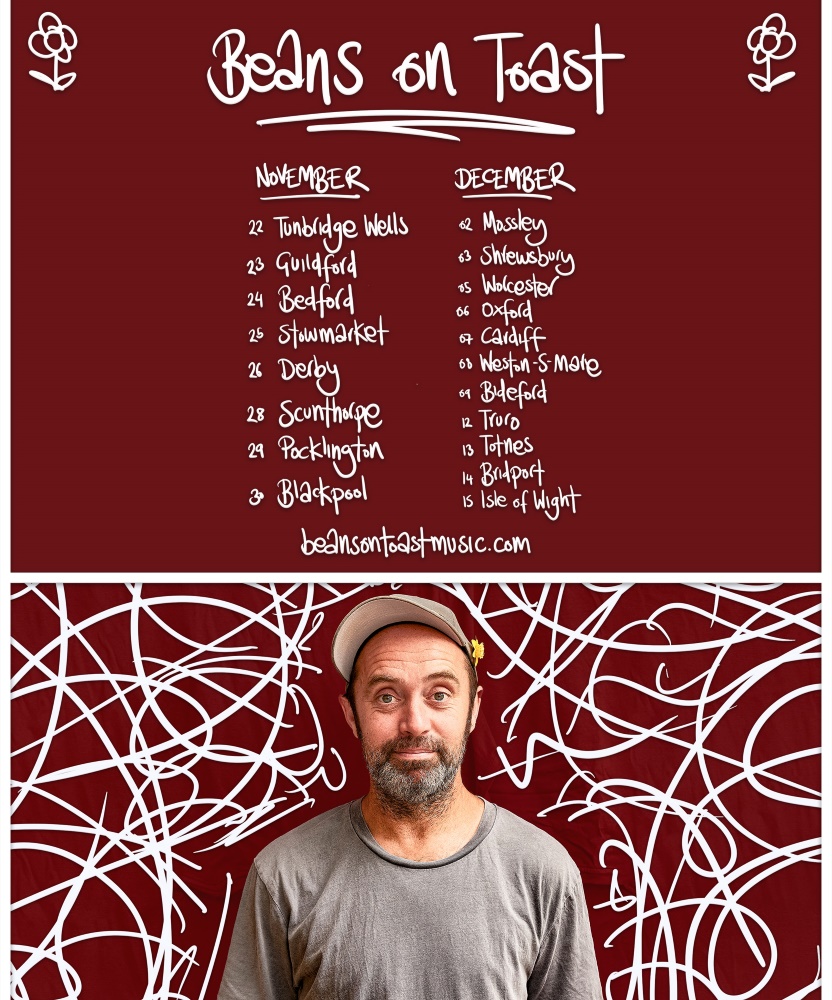 Beans on Toast
NOVEMBER
22 Tunbridge Wells
23 Guildford
24 Bedford
25 Stowmarket
26 Derby
28 Scunthorpe
29 Pocklington
30 Blackpool
DECEMBER
02 Mossley
03 Shrewsbury
05 Worcester
06 Oxford
07 Cardiff
08 Weston-S-Mare
09 Bideford
12 Truro
13 Totnes
14 Bridport
15 Isle of Wight
beansontoastmusic.com